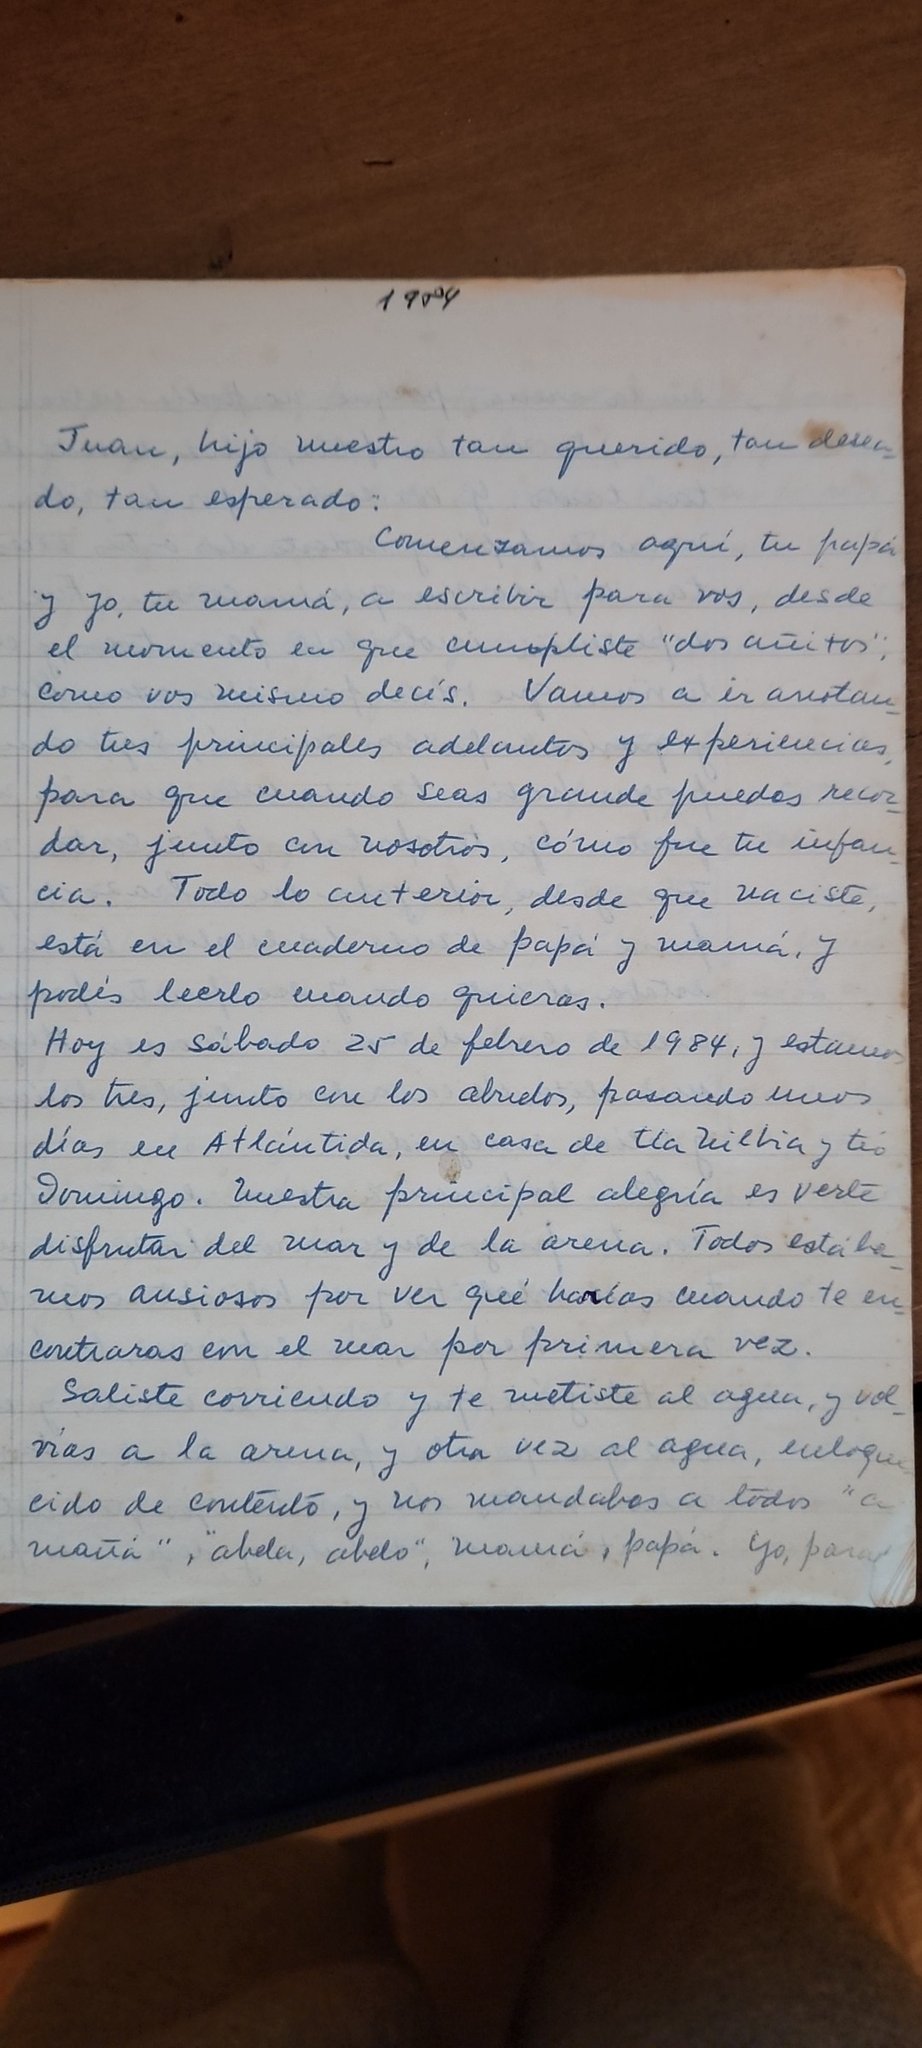 1984
Juan, hijo nuestro tan querido, tan desea-
do, tan esperado:
Comenzamos aquí, tu papá
y yo, tu mamá, a escribir para vos, desde
el momento en que cumpliste "dos añitos",
como vos mismo decís. Vamos a ir anotan-
do tus principales adelantos y experiencias,
para que cuando seas grande puedas recor-
dar, junto con nosotros, cómo fue tu infan-
cia. Todo lo anterior, desde que naciste,
está en el cuaderno de papá y mamá, y
podés leerlo cuando quieras.
Hoy es sábado 25 de febrero de 1984, y estamos
los tres, junto con los abuelos, pasando unos
días en Atlántida, en casa de tía Nilbia y tío
Domingo. Nuestra principal alegría es verte
disfrutar del mar y de la arena. Todos estába-
mos ansiosos por ver qué harías cuando te en-
contraras con el mar por primera vez.
Saliste corriendo y te metiste al agua, y vol-
vías a la arena, y otra vez al agua, enloque
cido de contento, y nos mandabas a todos "a
mañá", "abela, abelo", mamá, papá. Yo, para